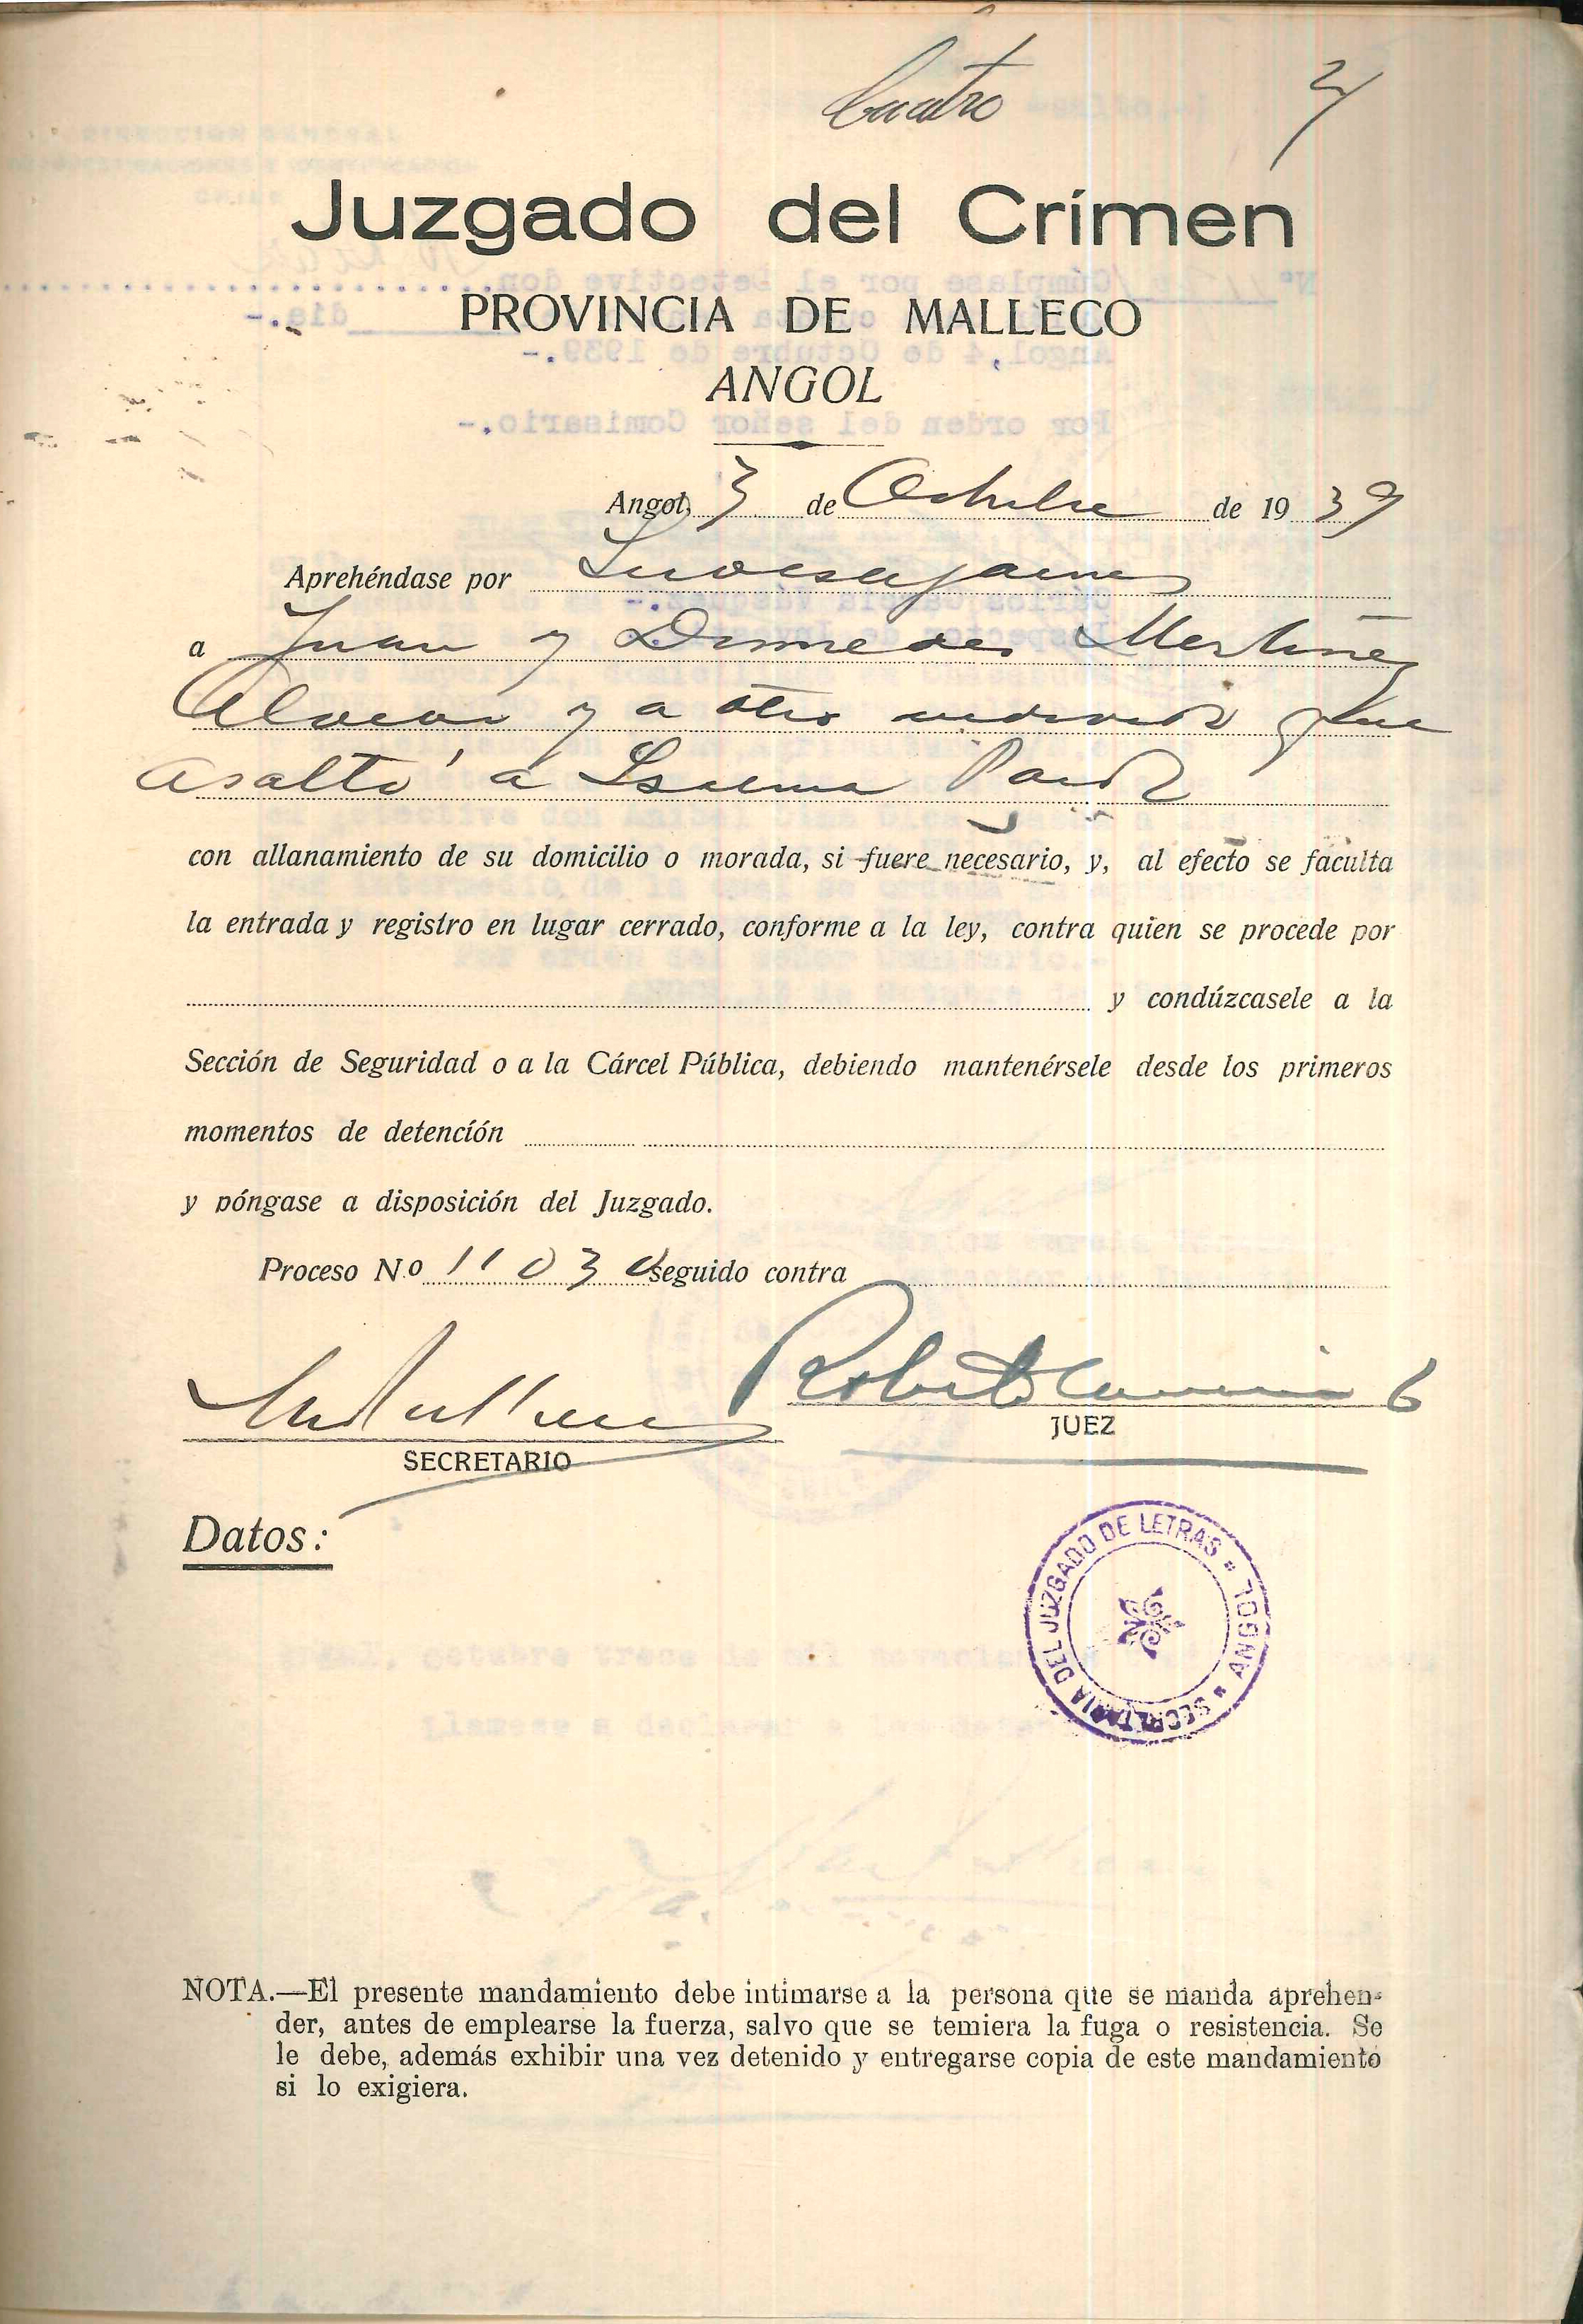 Cuatro 4
Juzgado del Crímen
PROVINCIA DE MALLECO
ANGOL
Angol, 3 de Octubre de 1939
Aprehéndase por Investigaciones
a Juan y Diomedes Martínez
y a otro individuo que
asaltó a
con allanamiento de su domicilio o morada, si fuere necesario, y, al efecto se faculta
la entrada y registro en lugar cerrado, conforme a la ley, contra quien se procede por
y condúzcasele a la
Sección de Seguridad o a la Cárcel Pública, debiendo mantenérsele desde los primeros
momentos de detención
y póngase a disposición del Juzgado.
Proceso N.o 11030 seguido contra
Roberto
JUEZ
SECRETARIO
Datos:
SECRETARIA DEL JUZGADO DE LETRAS * ANGOL *
NOTA.—El presente mandamiento debe intimarse a la persona que se manda aprehen-
der, antes de emplearse la fuerza, salvo que se temiera la fuga o resistencia. Se
le debe, además exhibir una vez detenido y entregarse copia de este mandamiento
si lo exigiera.